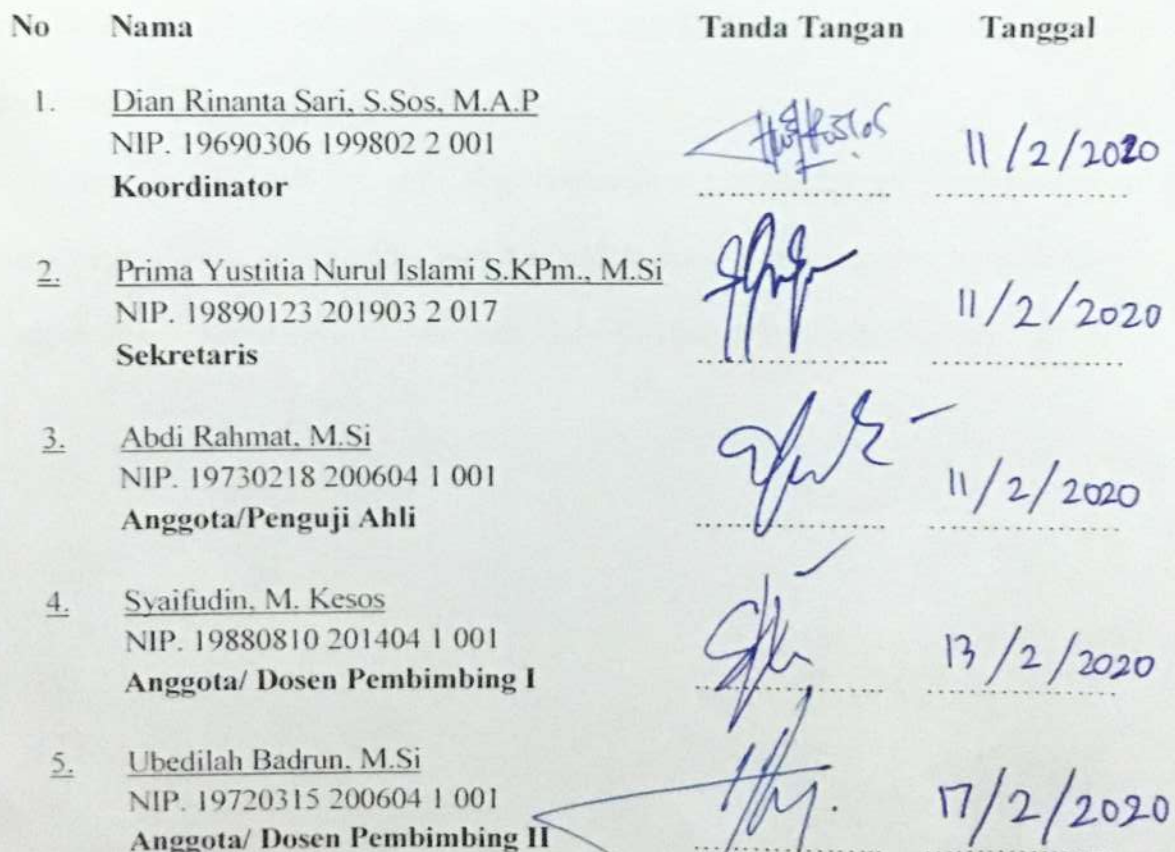 No Nama Tanda Tangan Tanggal
1. Dian Rinanta Sari, S.Sos, M.A.P
NIP. 19690306 199802 2 001
Koordinator
.................... 11/2/2020
2. Prima Yustitia Nurul Islami S.KPm., M.Si
NIP. 19890123 201903 2 017
Sekretaris
.................... 11/2/2020
3. Abdi Rahmat, M.Si
NIP. 19730218 200604 1 001
Anggota/Penguji Ahli
.................... 11/2/2020
4. Syaifudin, M. Kesos
NIP. 19880810 201404 1 001
Anggota/ Dosen Pembimbing I
.................... 13/2/2020
5. Ubedilah Badrun, M.Si
NIP. 19720315 200604 1 001
Anggota/ Dosen Pembimbing II
.................... 17/2/2020